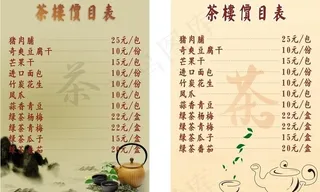 茶樓價目表
猪肉脯 25元/包
奇爽豆腐干 10元/份
芒果干 15元/包
进口面包 10元/份
竹炭花生 10元/份
凤瓜 10元/包
蒜香青豆 10元/包
绿茶杨梅 22元/盒
绿茶青梅 22元/盒
绿茶瓜子 15元/盒
绿茶番茄 20元/盒
茶
茶樓價目表
猪肉脯 25元/包
奇爽豆腐干 10元/份
芒果干 15元/包
进口面包 10元/份
竹炭花生 10元/份
凤瓜 10元/包
蒜香青豆 10元/包
绿茶杨梅 22元/盒
绿茶青梅 22元/盒
绿茶瓜子 15元/盒
绿茶番茄 20元/盒
茶